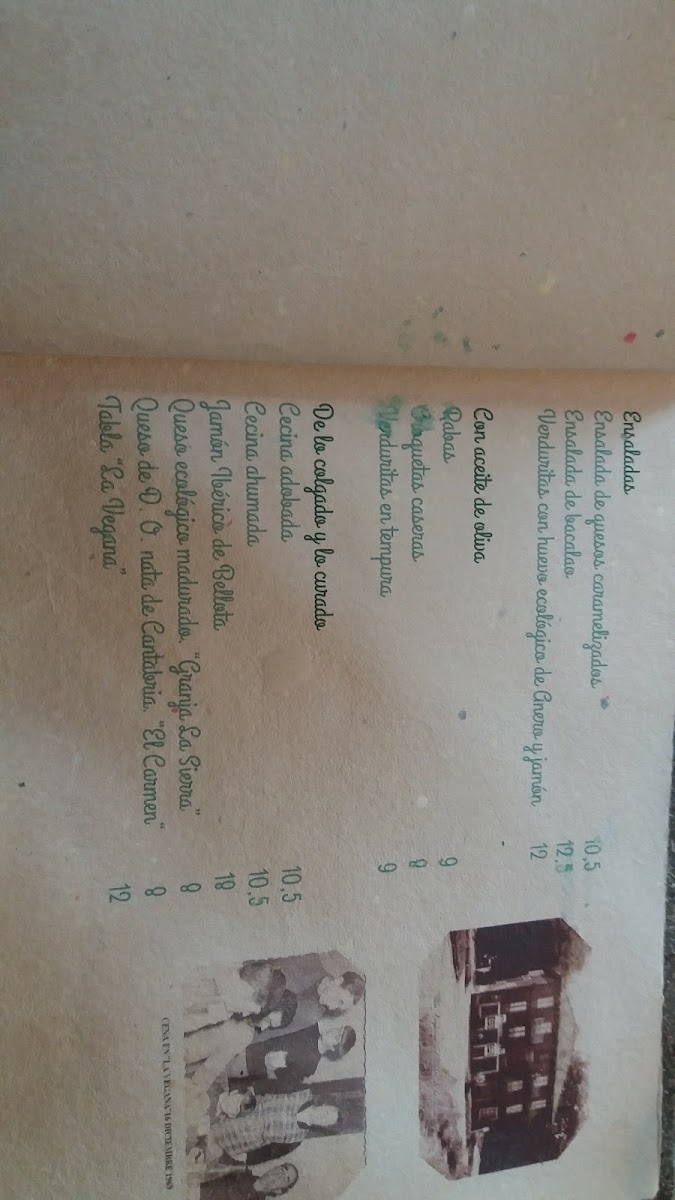 Ensaladas
Ensalada de quesos caramelizados 10,5
Ensalada de bacalao 12,5
Verduritas con huevo ecológico de Anero y jamón 12
Con aceite de oliva
Rabas 9
Croquetas caseras 8
Verduritas en tempura 9
De lo colgado y lo curado
Cecina adobada 10,5
Cecina ahumada 10,5
Jamón Ibérico de Bellota 18
Queso ecológico madurado. "Granja La Sierra" 8
Queso de D. O. nata de Cantabria. "El Carmen" 8
Tabla "La Vegana" 12
CENA EN "LA VEGANA" 16 DICIEMBRE